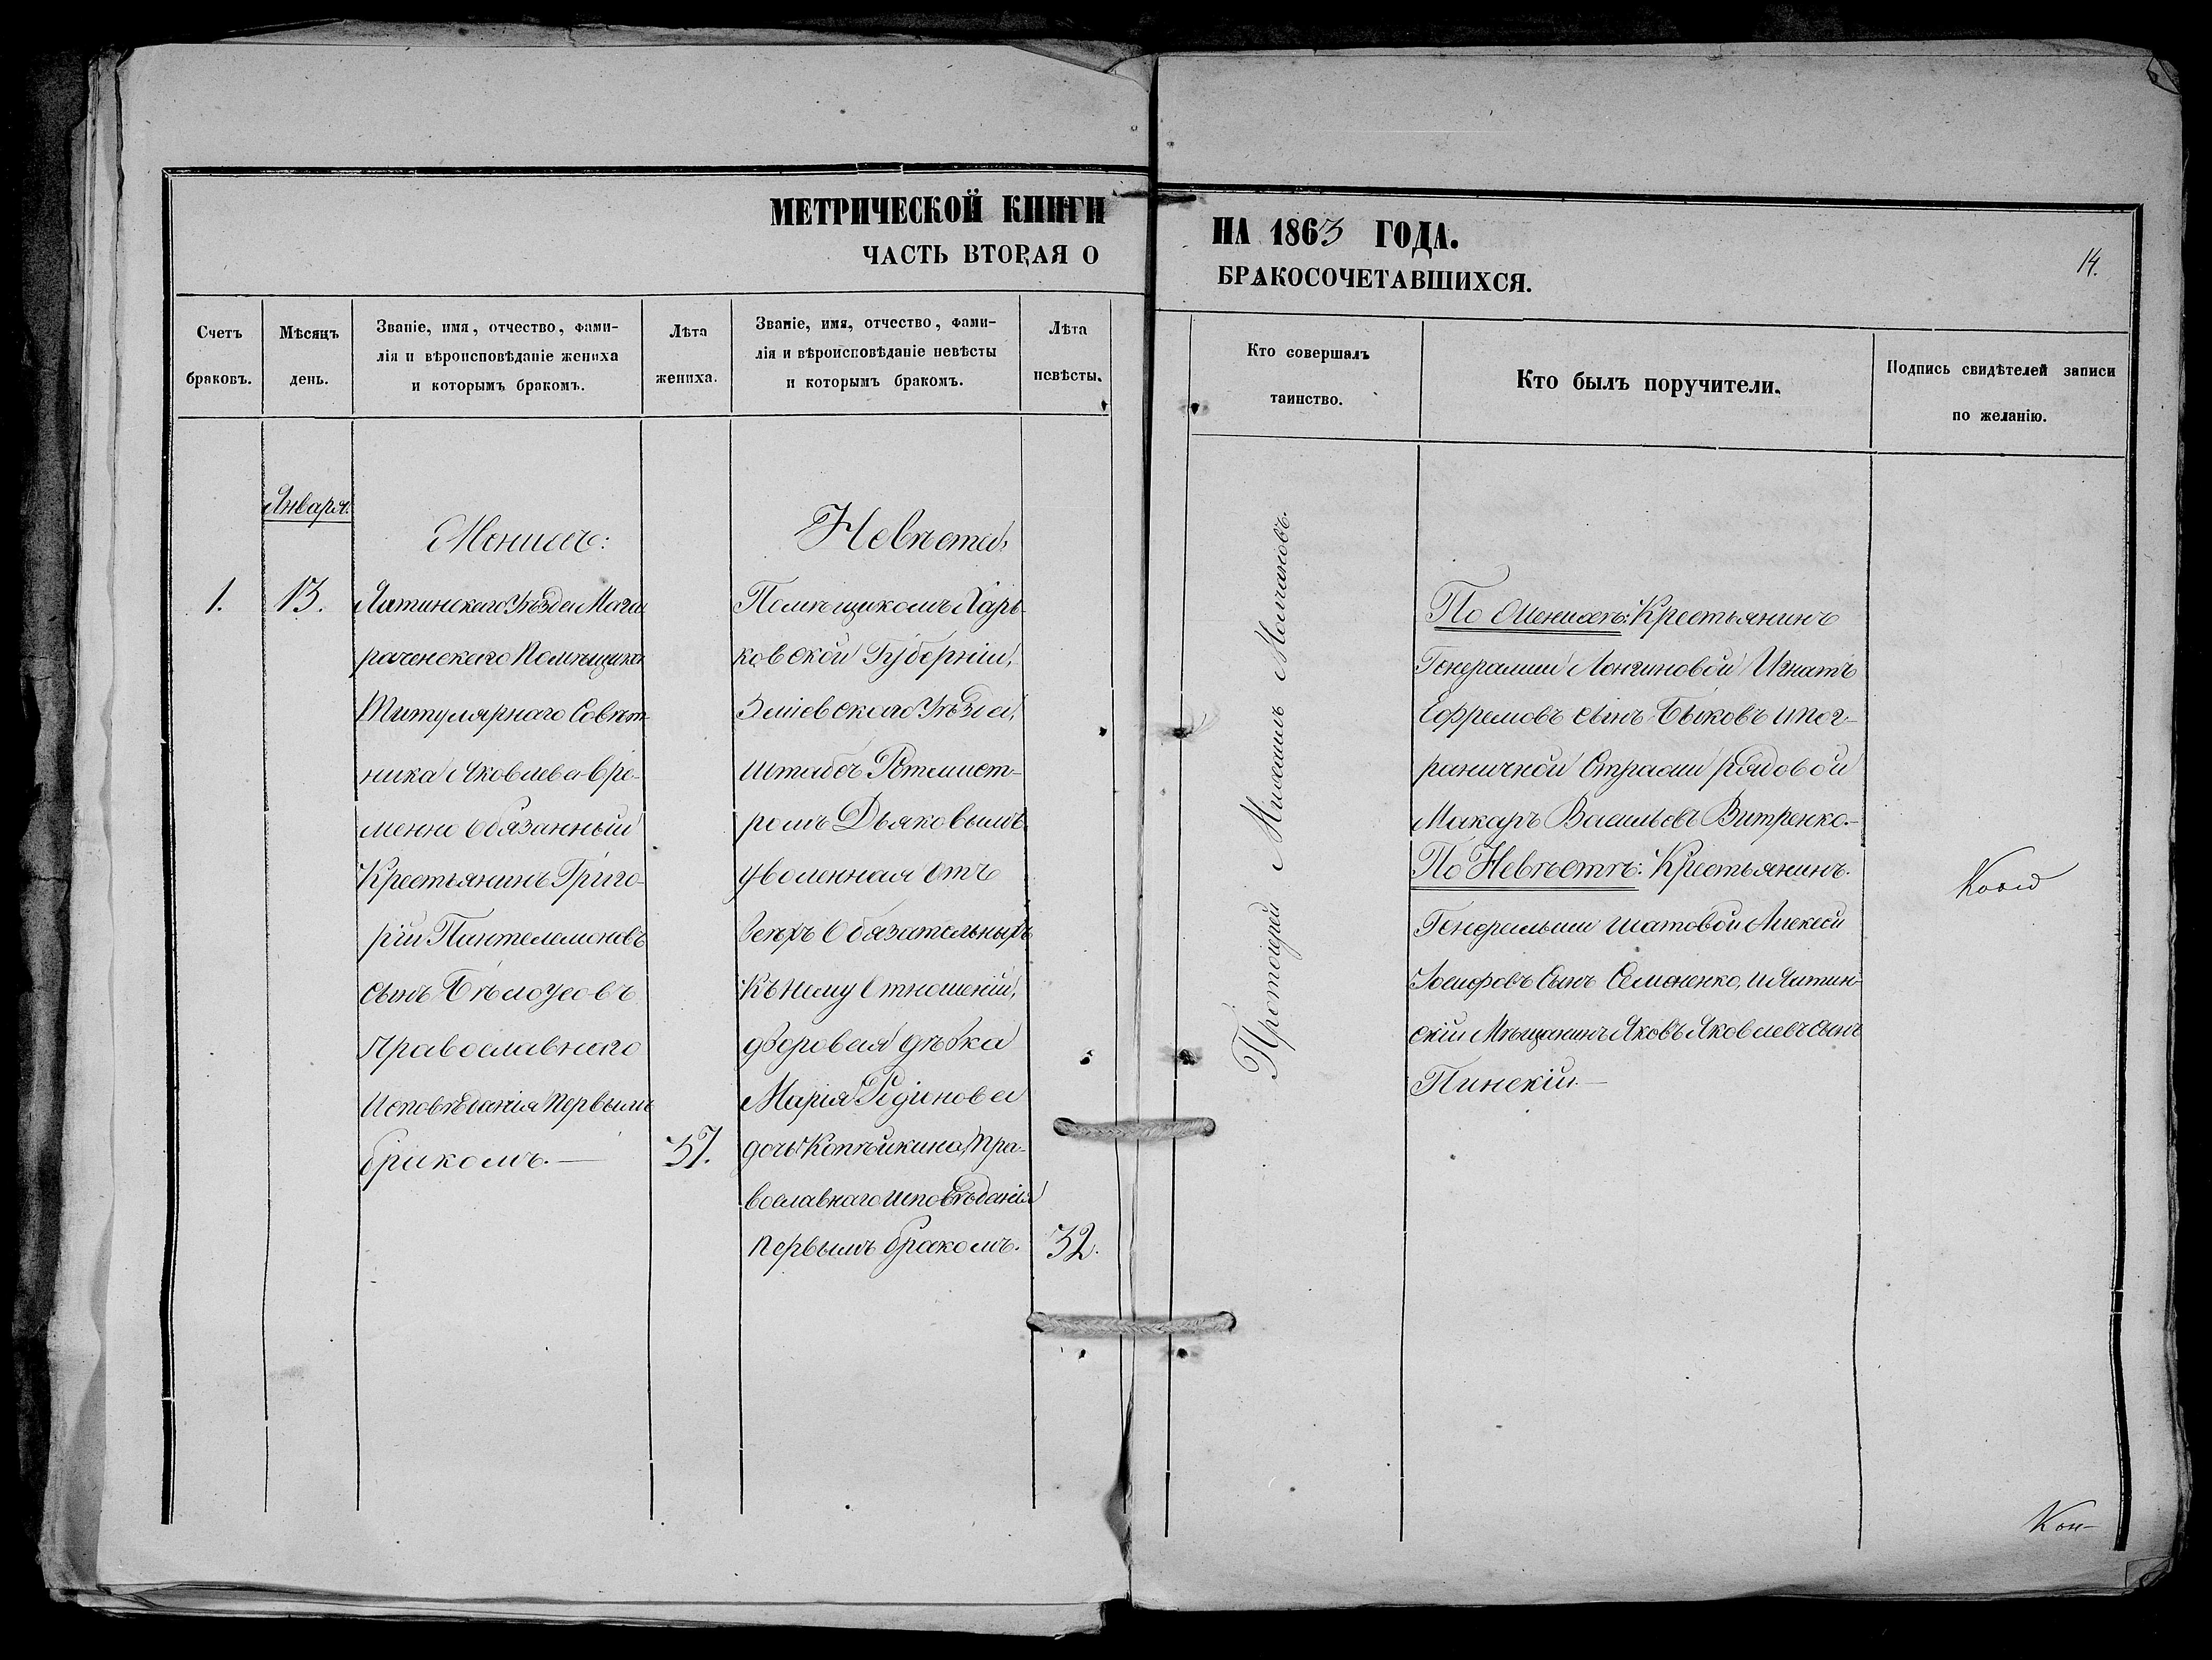 МЕТРИЧЕСКОЙ КНИГИ
ЧАСТЬ ВТОРАЯ О
НА 1863 ГОДА.
БРАКОСОЧЕТАВШИХСЯ.
14.
Счетъ
браковъ.
Мѣсяцъ
день.
Званіе, имя, отчество, фами-
лія и вѣроисповѣданіе жениха
и которымъ бракомъ.
Лѣта
жениха.
Званіе, имя, отчество, фами-
лія и вѣроисповѣданіе невѣсты
и которымъ бракомъ.
Лѣта
невѣсты.
Кто совершалъ
таинство.
Кто былъ поручители.
Подпись свидѣтелей записи
по желанію.
Января.
1.
13.
Женихъ:
Ялтинскаго Уѣзда Мага-
рачскаго Помѣщика
Титулярнаго Совѣт-
ника Яковлева вре-
менно обязанный
Крестьянинъ Григо-
рій Пантелемоновъ
сынъ Бѣлоусовъ
Православнаго
Исповѣданія первымъ
бракомъ.—
37.
Невѣста,
Помѣщикомъ Харь-
ковской Губерніи,
Зміевскаго Уѣзда,
Штабсъ Ротмист-
ромъ Дьяковымъ
уволенная отъ
всѣхъ обязательныхъ
къ нему отношеній,
дворовая дѣвка
Марія Родионова
дочь Копѣйкина, Пра-
вославнаго исповѣданія
первымъ бракомъ.
32.
Протоіерей Михаилъ Молчановъ.
По Женихѣ: Крестьянинъ
Генеральши Лонгиновой Игнатъ
Ефремовъ сынъ Быковъ и пог-
раничной Стражи рядовой
Макаръ Васильевъ Витренко.—
По Невѣстѣ: Крестьянинъ
Генеральши Шатовой Алексѣй
Іосифовъ Сынъ Семоненко, и Ялтин-
скій Мѣщанинъ Яковъ Яковлевъ сынъ
Пинскій.—
Кон-